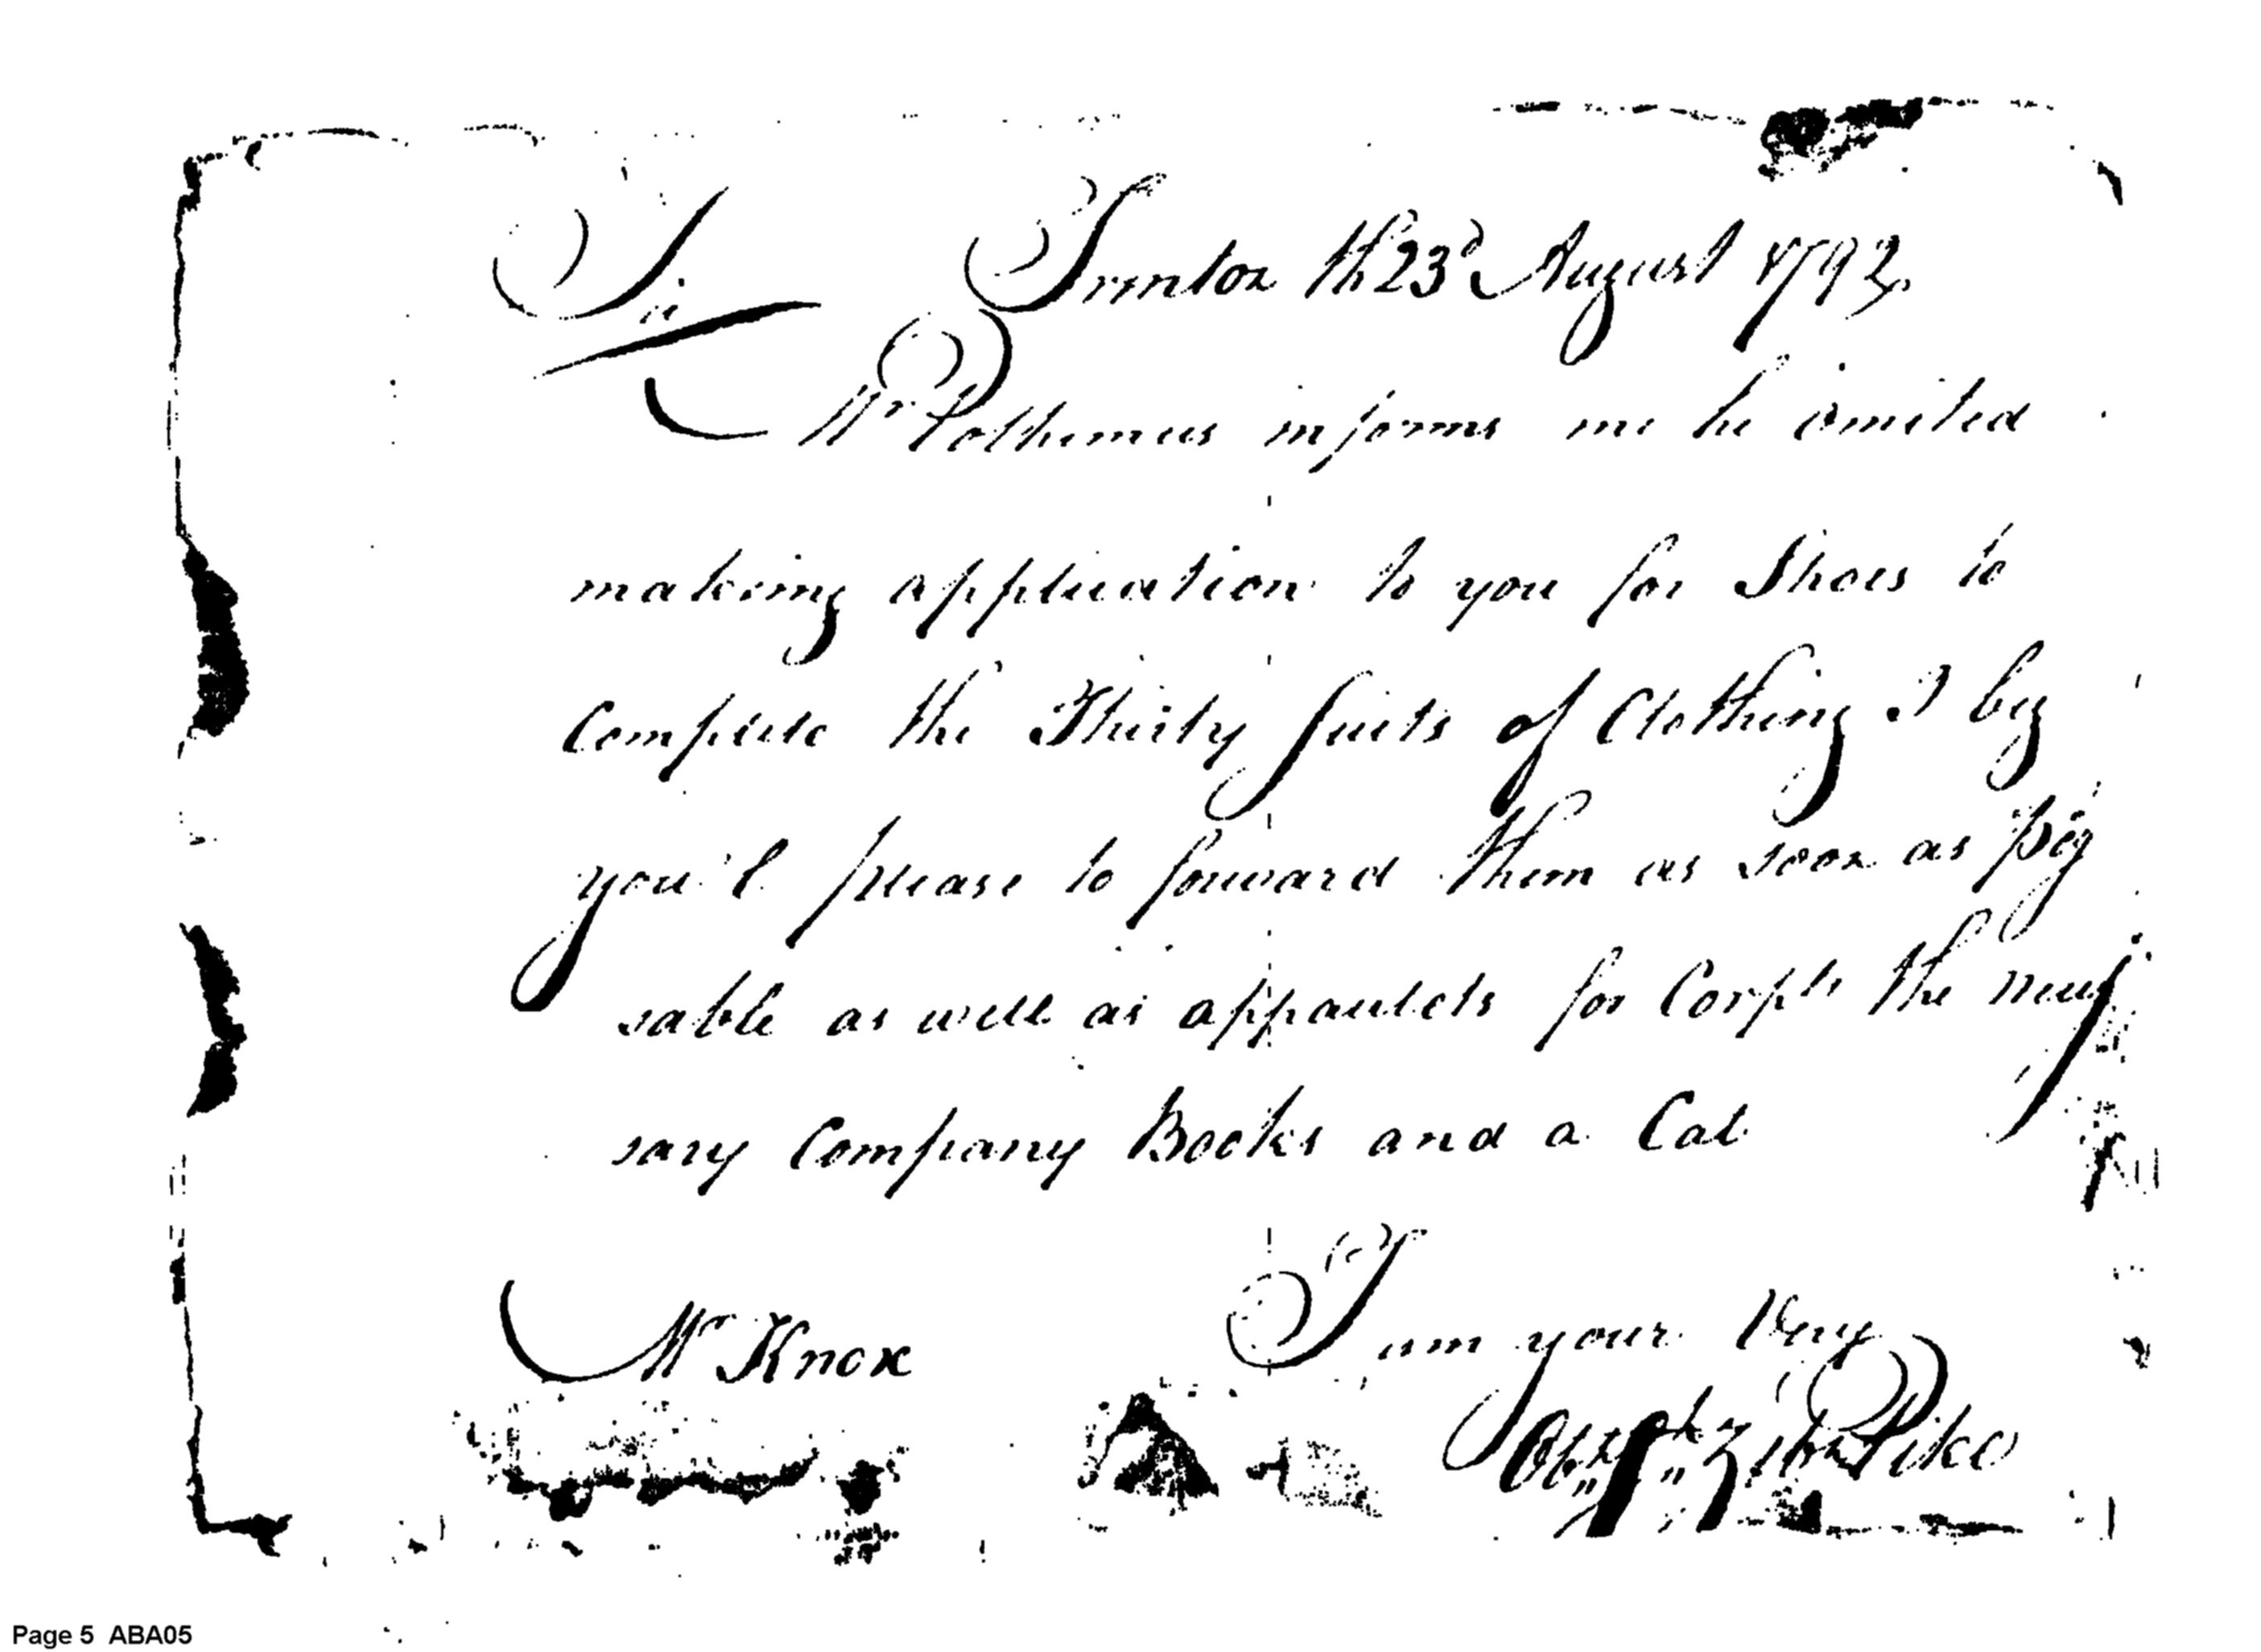 Sir Trenton th 23d August 1792
Mr Polhemus informs me he omited
making application to you for Shoes to
Compleate the Thirty Suits of Clothing I beg
you'l please to forward them as soon as
sable as well as appaulets for Corpls the neces
sary Company Books and a Cat
Mr Knox I am your Very
Pike
Page 5 ABA05